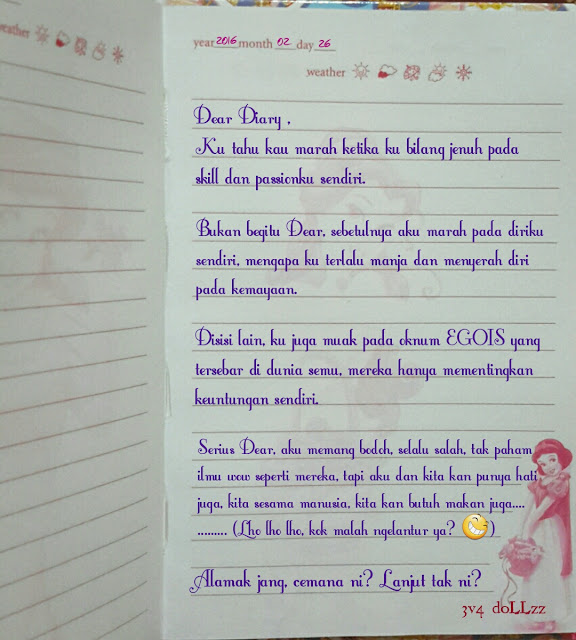 eather
year 2016 month 02 day 26
weather
Dear Diary ,
Ku tahu kau marah ketika ku bilang jenuh pada
skill dan passionku sendiri.
Bukan begitu Dear, sebetulnya aku marah pada diriku
sendiri, mengapa ku terlalu manja dan menyerah diri
pada kemayaan.
Disisi lain, ku juga muak pada oknum EGOIS yang
tersebar di dunia semu, mereka hanya mementingkan
keuntungan sendiri.
Serius Dear, aku memang bodoh, selalu salah, tak paham
ilmu wow seperti mereka, tapi aku dan kita kan punya hati
juga, kita sesama manusia, kita kan butuh makan juga....
......... (Lho lho lho, kok malah ngelantur ya? 😆)
Alamak jang, cemana ni? Lanjut tak ni?
3v4 doLLzz